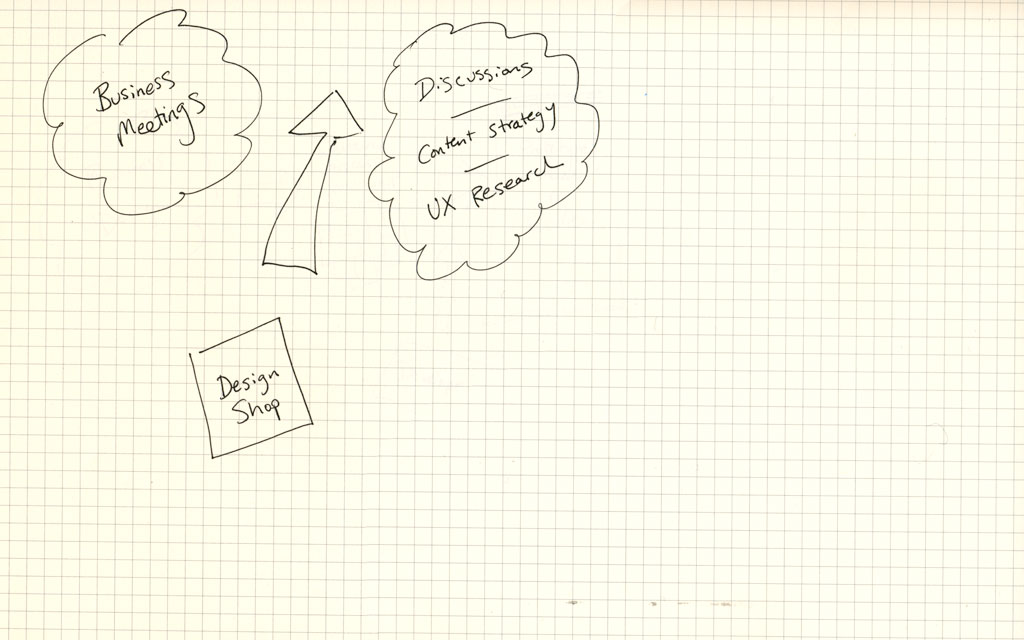 Business
Meetings
Discussions
Content Strategy
UX Research
Design
Shop